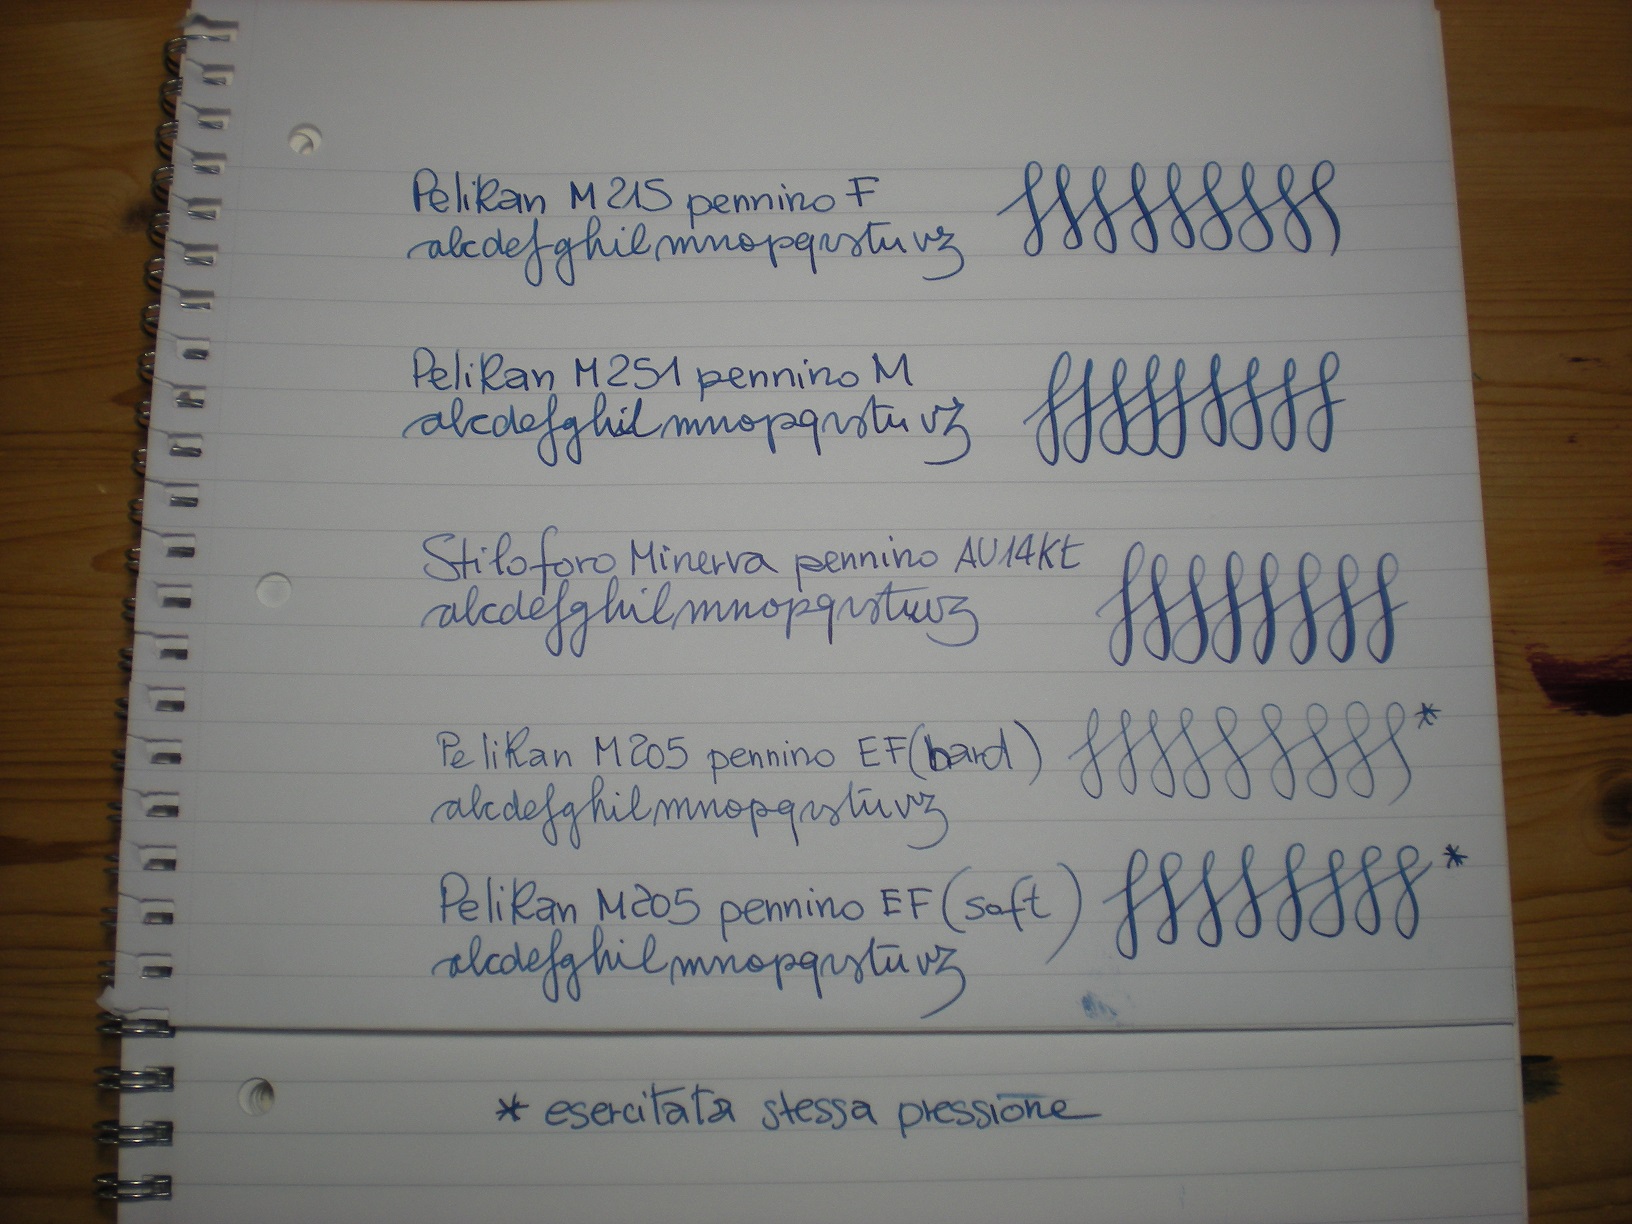 Pelikan M215 pennino F
abcdefghilmnopqrstuvz
Pelikan M251 pennino M
abcdefghilmnopqrstuvz
Stiloforo Minerva pennino AU14Kt
abcdefghilmnopqrstuvz
Pelikan M205 pennino EF (hard) *
abcdefghilmnopqrstuvz
Pelikan M205 pennino EF (soft) *
abcdefghilmnopqrstuvz
* esercitata stessa pressione